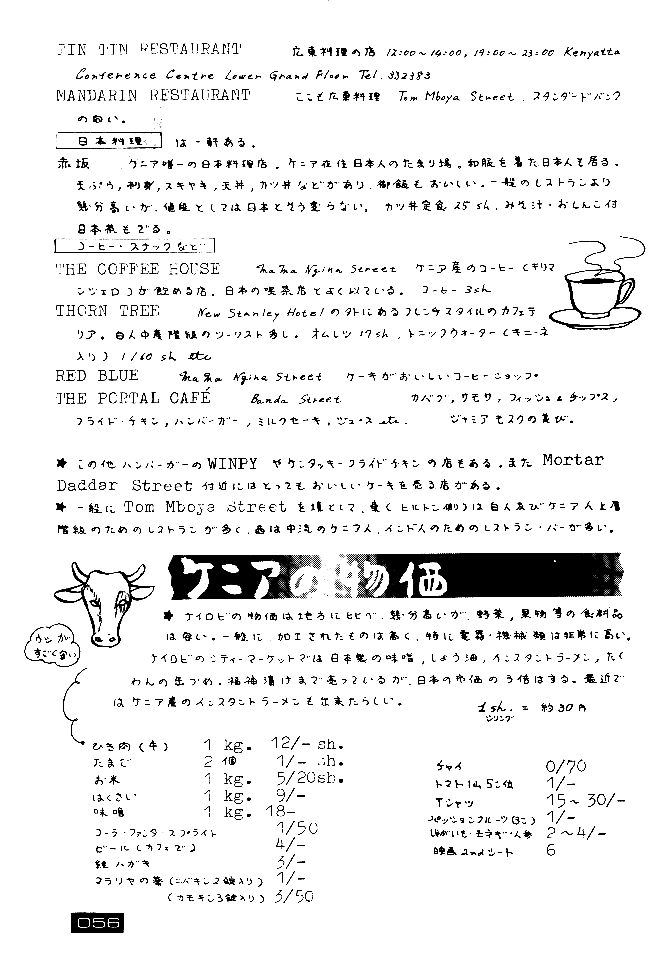 TIN TIN RESTAURANT 広東料理の店 12:00～14:00, 19:00～23:00 Kenyatta
Conference Centre Lower Grand Floor Tel. 332383
MANDARIN RESTAURANT ここも広東料理 Tom Mboya Street. スタンダードバンク
の向い。
日本料理 は一軒ある。
赤坂 ケニア唯一の日本料理店。ケニア在住日本人のたまり場。和服を着た日本人も居る。
天ぷら, 刺身, スキヤキ, 天丼, カツ丼などがあり, 御飯もおいしい。一般のレストランより
幾分高いが, 値段としては日本とそう変らない。カツ丼定食 25 sh, みそ汁・おしんこ付
日本茶もでる。
コーヒー・スナックなど
THE COFFEE HOUSE Mama Ngina Street ケニア産のコーヒー(キリマ
ンジェロ)が飲める店。日本の喫茶店とよく似ている。コーヒー 3sh
THORN TREE New Stanley Hotel の外にあるフレンチスタイルのカフェテ
リア。白人中産階級のツーリスト多し。オムレツ 17sh, トニックウォーター(キニーネ
入り) 1/60 sh etc
RED BLUE Mama Ngina Street ケーキがおいしいコーヒーショップ。
THE PORTAL CAFÉ Banda Street カバブ, サモサ, フィッシュ&チップス,
フライド・チキン, ハンバーガー, ミルクセーキ, ジュース etc. ジャミアモスクの並び。
★ この他ハンバーガーのWINPY やケンタッキーフライドチキンの店もある。また Mortar
Daddar Street 付近にはとってもおいしいケーキを売る店がある。
★ 一般に Tom Mboya Street を境として, 東(ヒルトン側)は白人及びケニア人上層
階級のためのレストランが多く, 西は中流のケニア人, インド人のためのレストラン・バーが多い。
ケニアの物価
★ ナイロビの物価は地方にくらべ, 幾分高いが, 野菜, 果物等の食料品
は安い。一般に, 加工されたものは高く, 特に電器・機械類は非常に高い。
ウシが
すごく安い
ナイロビのシティーマーケットでは日本製の味噌, しょう油, インスタントラーメン, たく
わんの缶づめ, 福神漬けまで売っているが, 日本の市価の3倍はする。最近で
はケニア産のインスタントラーメンも出来たらしい。
1sh. = 約30円
シリング
ひき肉(牛) 1 kg. 12/- sh.
たまご 2 個 1/- sh.
お米 1 kg. 5/20sh.
はくさい 1 kg. 9/-
味噌 1 kg. 18-
コーラ・ファンタ・スプライト 1/50
ビール(カフェで) 4/-
絵ハガキ 3/-
マラリヤの薬(ニバキン2錠入り) 1/-
(カモキン3錠入り) 3/50
チャイ 0/70
トマト 1/-
Tシャツ 15～30/-
パッションフルーツ(3こ) 1/-
じゃがいも・玉ネギ・人参 2～4/-
映画 2ndシート 6
056